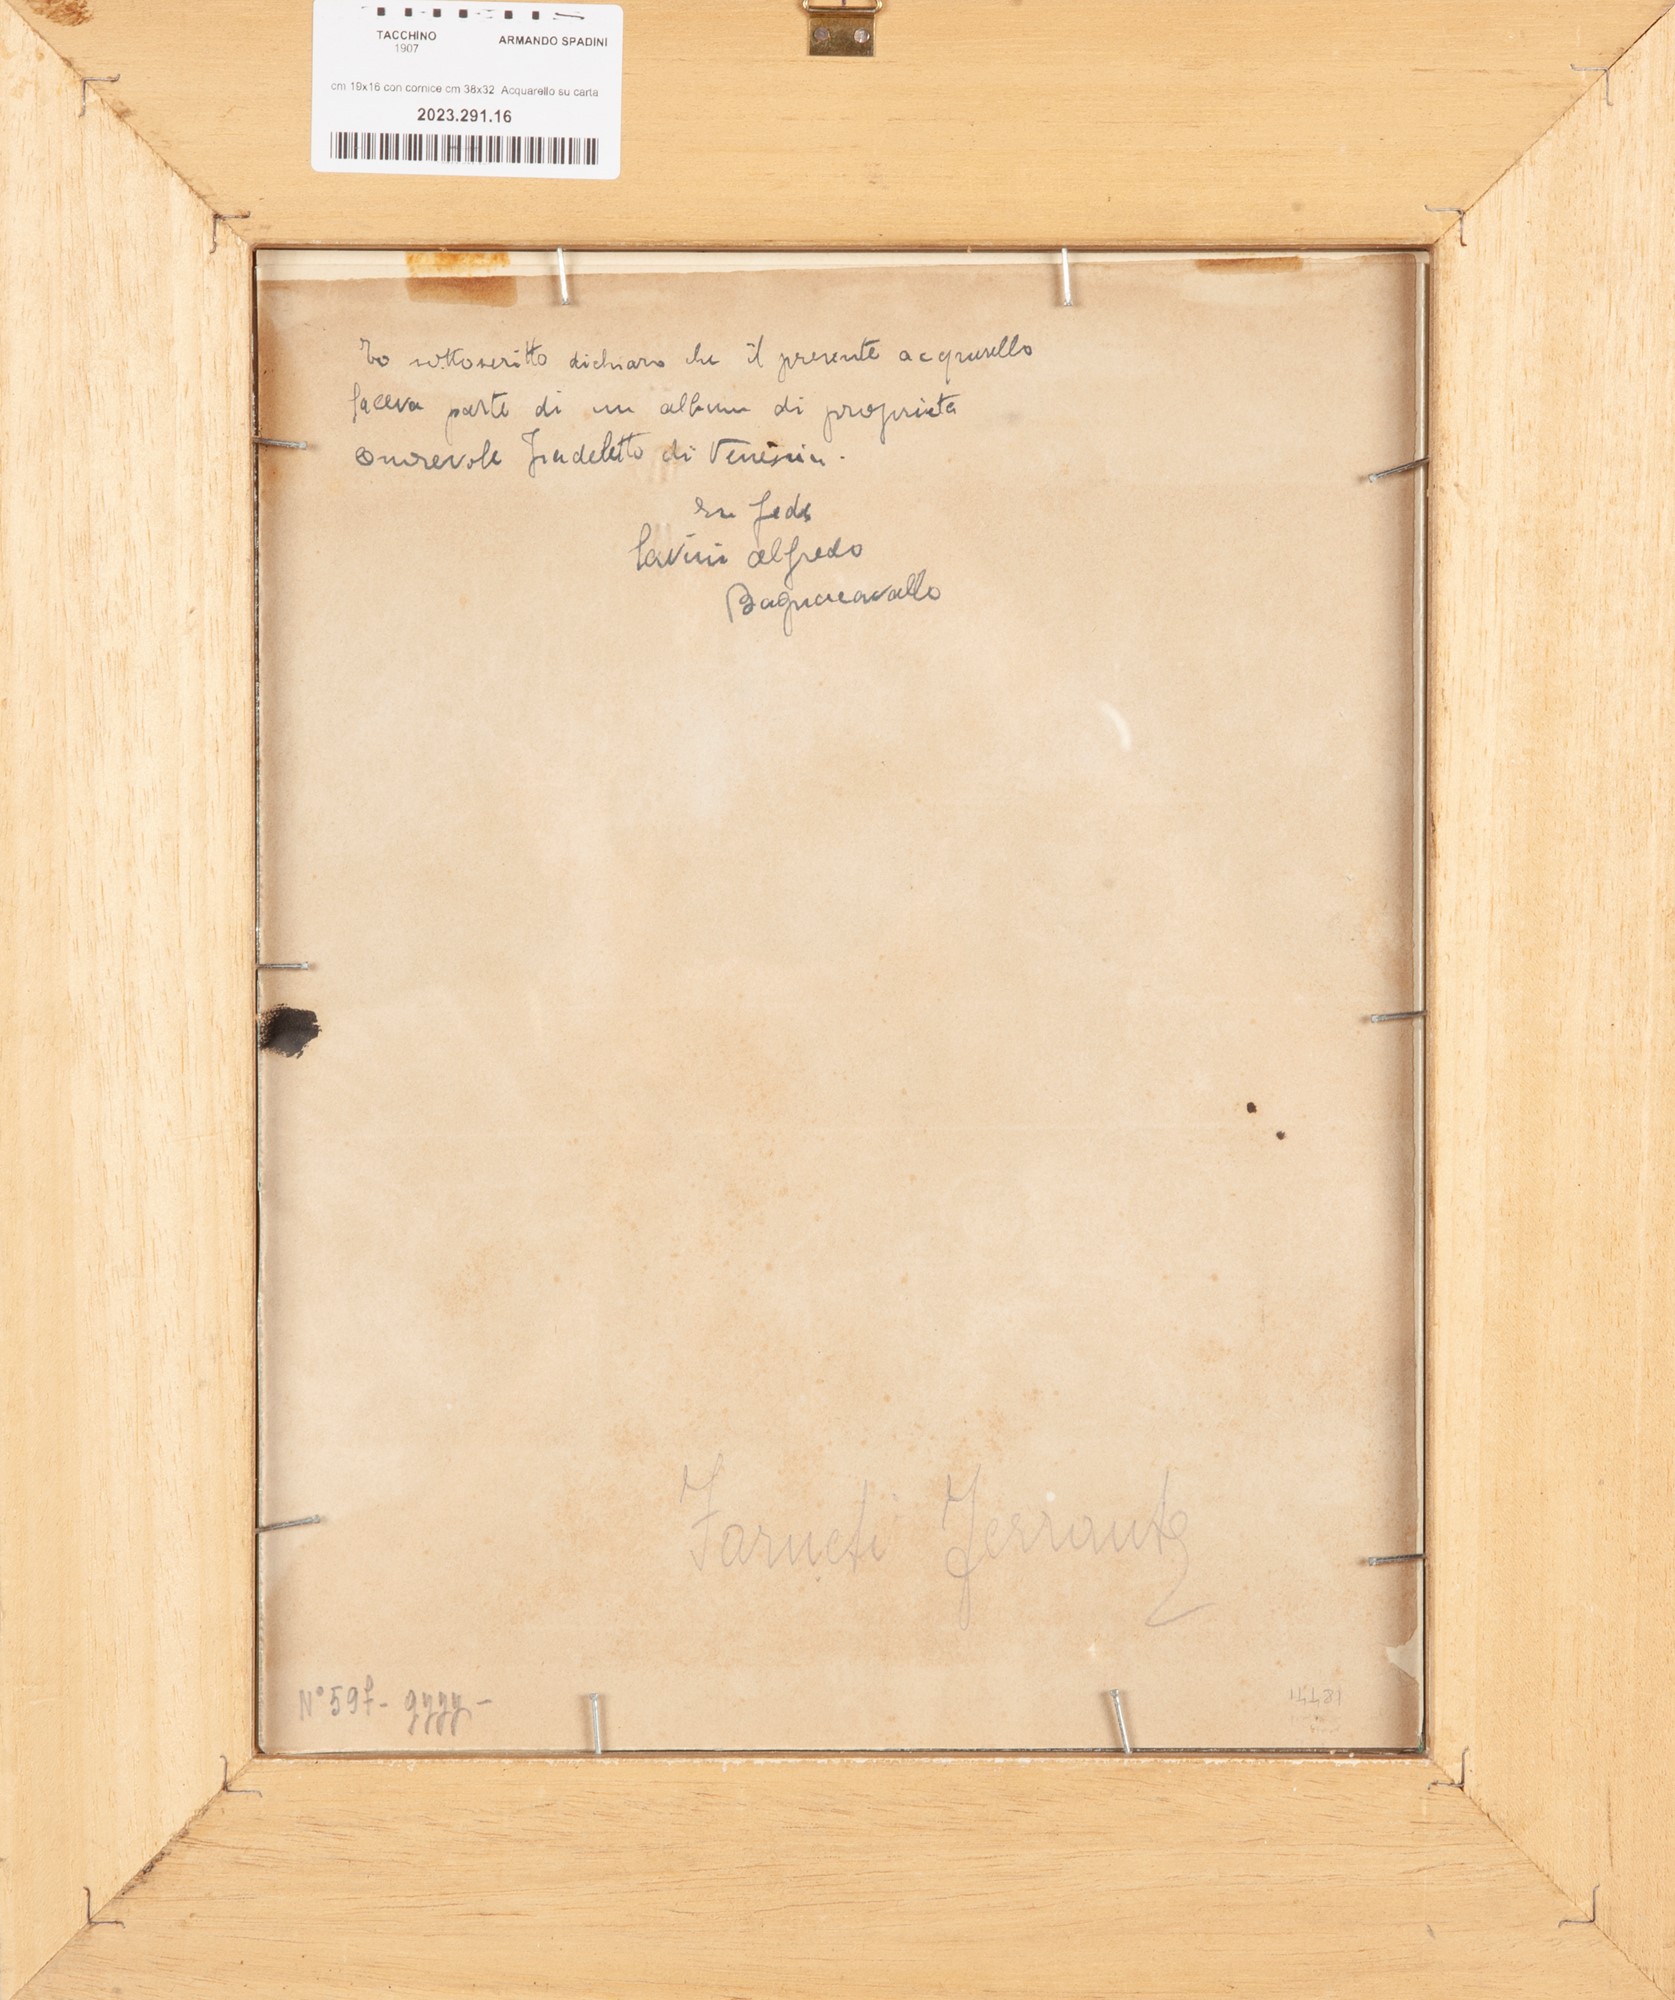 TACCHINO
1907
ARMANDO SPADINI
cm 19x16 con cornice cm 38x32 Acquarello su carta
2023.291.16
Io sottoscritto dichiaro che il presente acquarello
faceva parte di un album di proprietà
onorevole Fradeletto di Venezia.
In fede
Savini Alfredo
Bagnacavallo
Farneti Ferrante
N° 597-